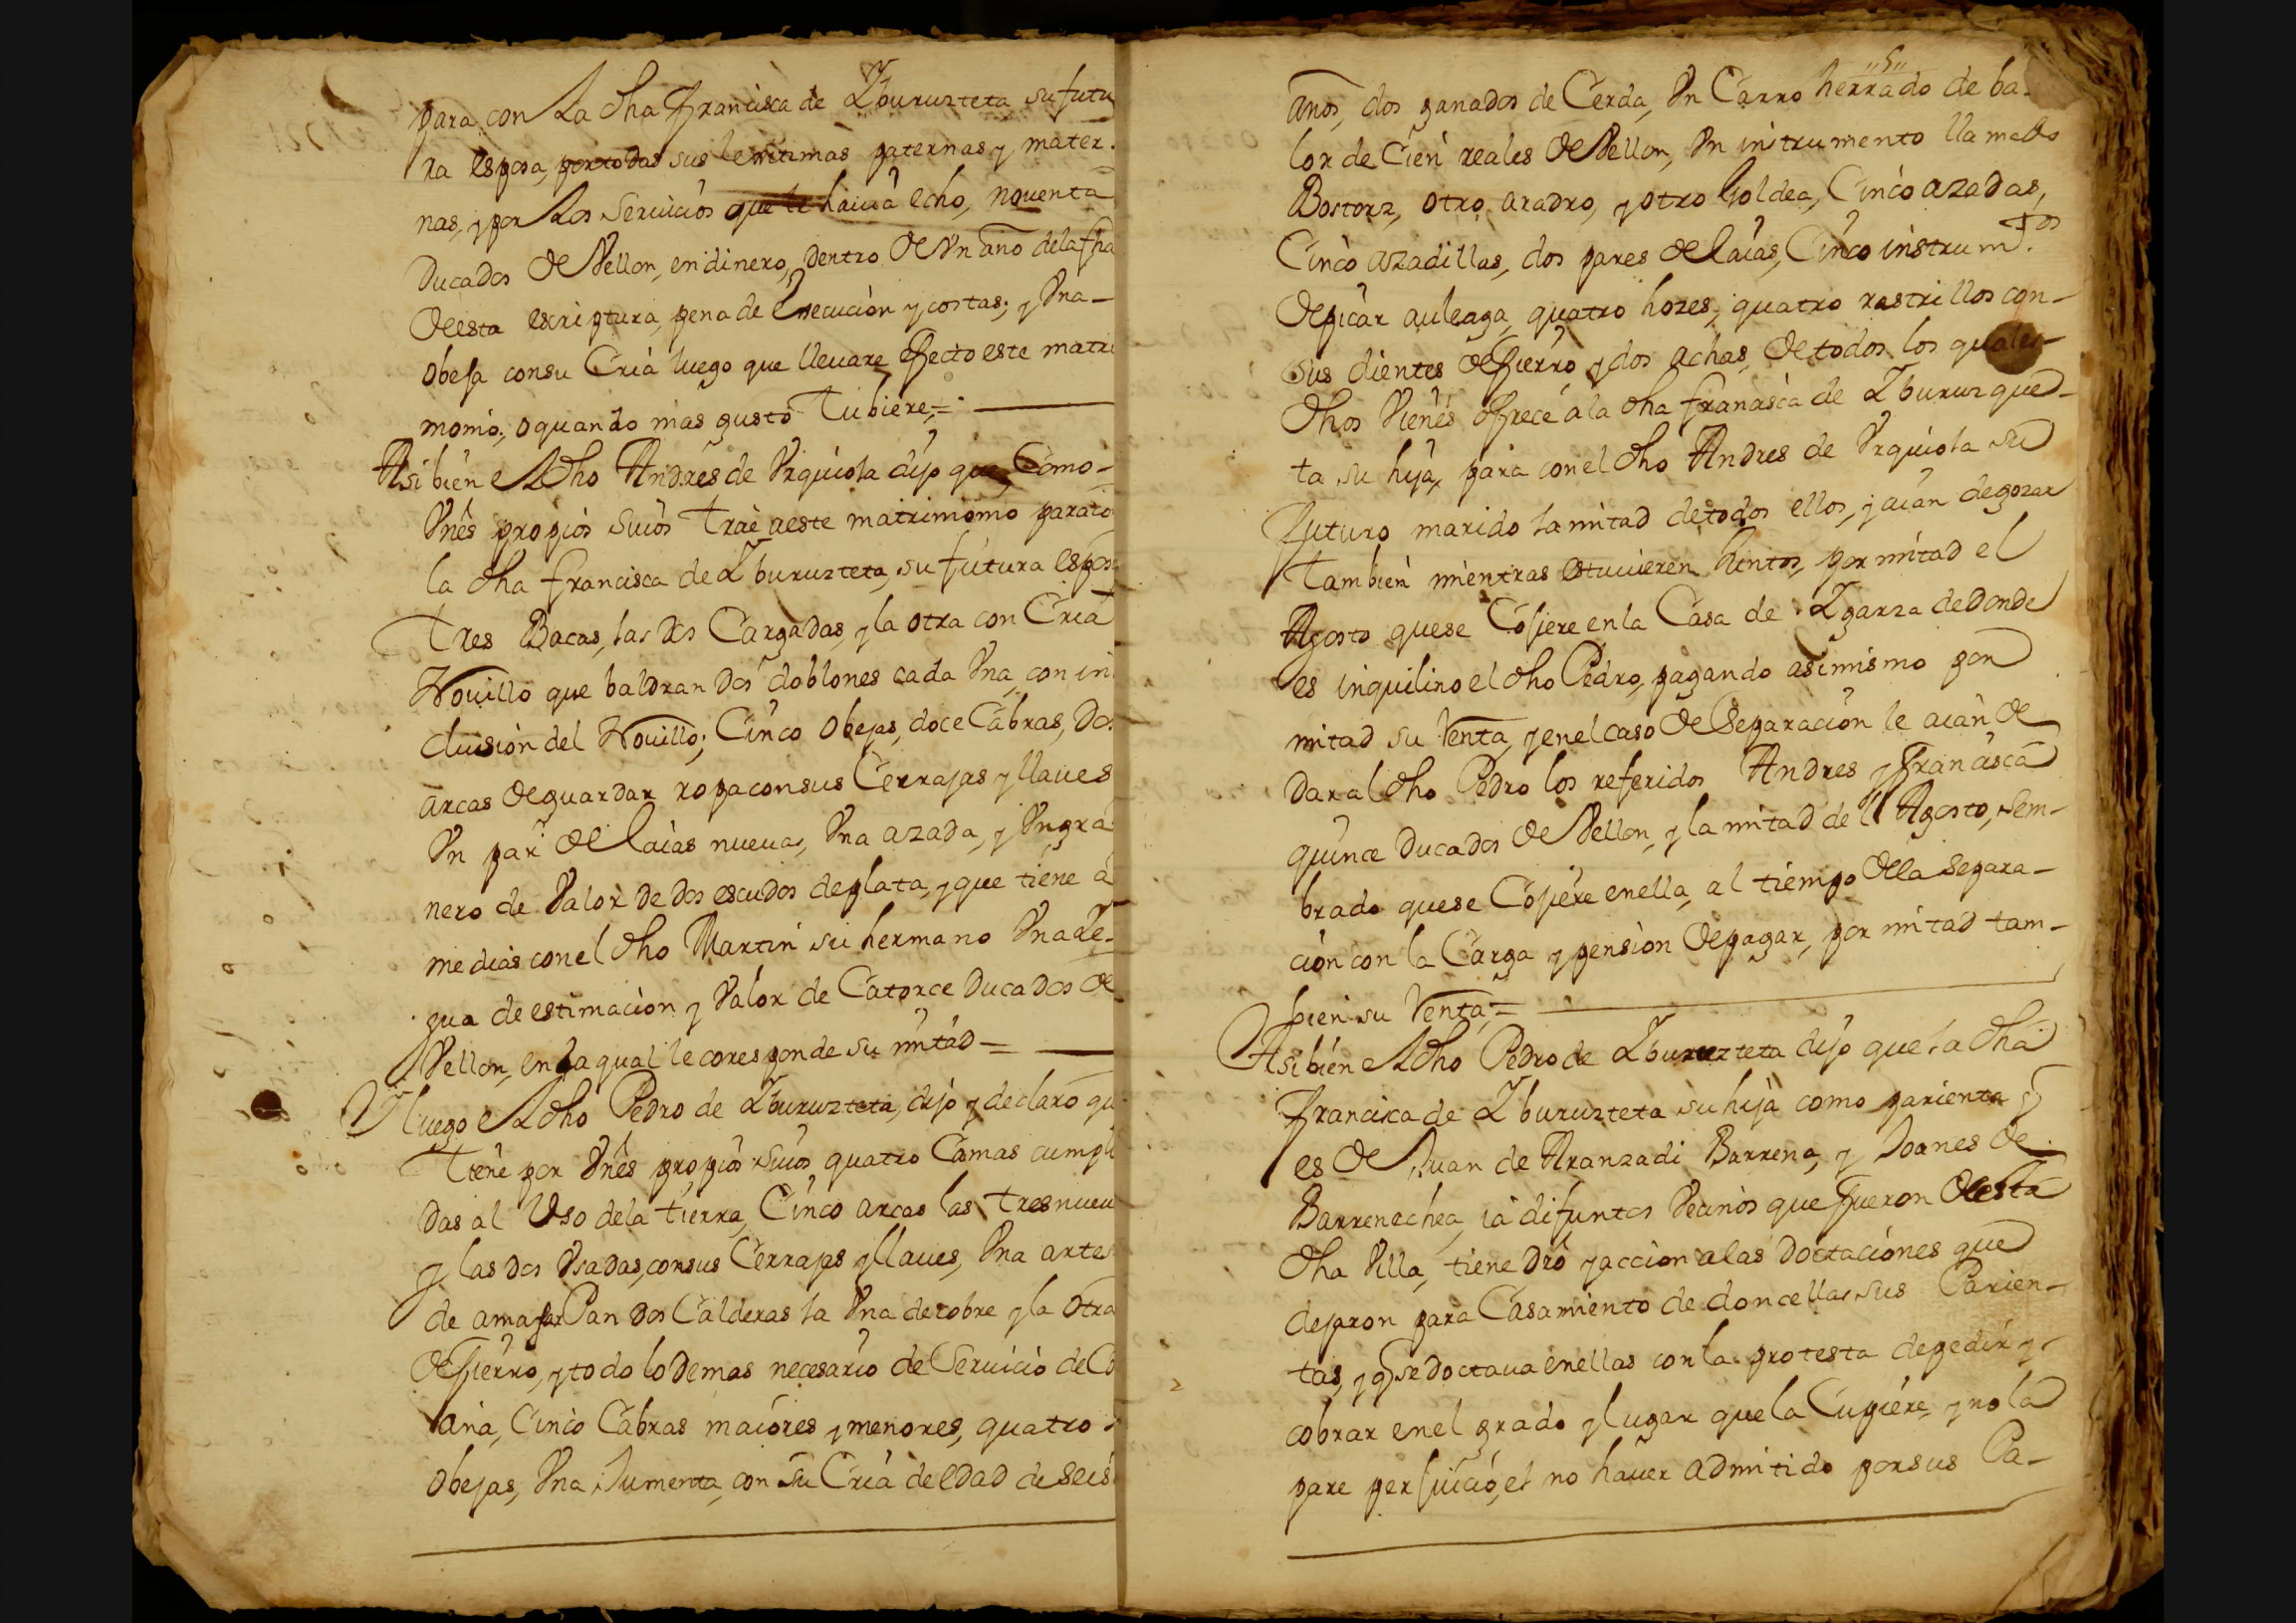 para con La dha Francisca de Yburuzteta su futu
ra esposa, por todas sus lexitimas paternas y mater-
nas, y por Los seruicios que le hauia echo, nouenta
Ducados de Vellon, en dinero, dentro de Vn año dela fha
de esta escriptura, pena de execucion y costas; y Vna
obeja consu Cria luego que lleuare efecto este matri
monio, o quando mas gusto Tubiere,=
Asi bien el dho Andres de Vrquiola dijo que, Como
Vnês propios suios Trae a este matrimonio para co
la dha Francisca de Yburuzteta, su futura espos
Tres Bacas, las dos Cargadas, y la otra con Cria
Nouillo que baldran dos doblones cada Vna, con in
clusion del Nouillo; Cinco obejas, doce Cabras, Dos
arcas de guardar ropa consus Cerrajas y llaues
Vn par de laias nueuas, Vna azada, y Vn gra
nero de Valor de dos escudos de plata, y que tiene à
medias con el dho Martin su hermano Vna Ye-
gua de estimacion y Valor de Catorce Ducados de
Vellon, en la qual le coresponde su mitad =
Y luego el dho Pedro de Yburuzteta, dijo y declaro qu
Tiene por Vnês propios suios quatro Camas cumpli
das al Vso dela tierra, Cinco arcas las tres nueu
y las dos Vsadas, consus Cerrajas y llaues, Vna artes
de amasar Pan dos Calderas la Vna de cobre y la otra
de fierro, y todo lo demas necesario de Seruicio de Co
cina, Cinco Cabras maiores y menores, quatro
obejas, Vna Jumenta, con su Cria de edad de seis
"5"
años, dos ganados de Cerda, Vn Carro herrado de ba-
lor de Cien reales de Vellon, Vn instrumento llamado
Bostorz, otro aradro, y otro Goldea, Cinco azadas,
Cinco azadillas, dos pares de laias, Cinco instrum.tos
de picar auleaga, quatro hozes, quatro rastrillos con-
sus dientes de fierro y dos achas, de todos los quales
dhos Vienes ofrece a la dha francisca de Yburuzque-
ta su hija, para con el dho Andres de Vrquiola su
futuro marido la mitad de todos ellos, y aian de gozar
Tambien mientras estuuieren Vintos, por mitad el
Agosto quese Cojiere en la Casa de Ygarza de donde
es inquilino el dho Pedro, pagando asimismo por
mitad su Renta, y en el caso de Separacion le aian de
dar al dho Pedro los referidos Andres y Francisca
quince Ducados de Vellon, y la mitad del Agosto, sem-
brado quese Cojiere en ella, al tiempo de la separa-
cion con la Carga y pension de pagar, por mitad tam-
bien su Renta,=
Asi bien el dho Pedro de Yburuzteta dijo que la dha
Francisca de Yburuzteta su hija como parienta q
es de Juan de Aranzadi Barrena, y Joanes de
Barrenechea, ia difuntos Vecinos que fueron de esta
dha Villa, tiene dro y accion a las doctaciones que
dejaron para Casamiento de doncellas sus Parien-
tas, y q se doctaua en ellas con la protesta de pedir y
cobrar en el grado y lugar que la Cupiere, y no la
pare perjuicio, el no hauer admitido por sus Ca-